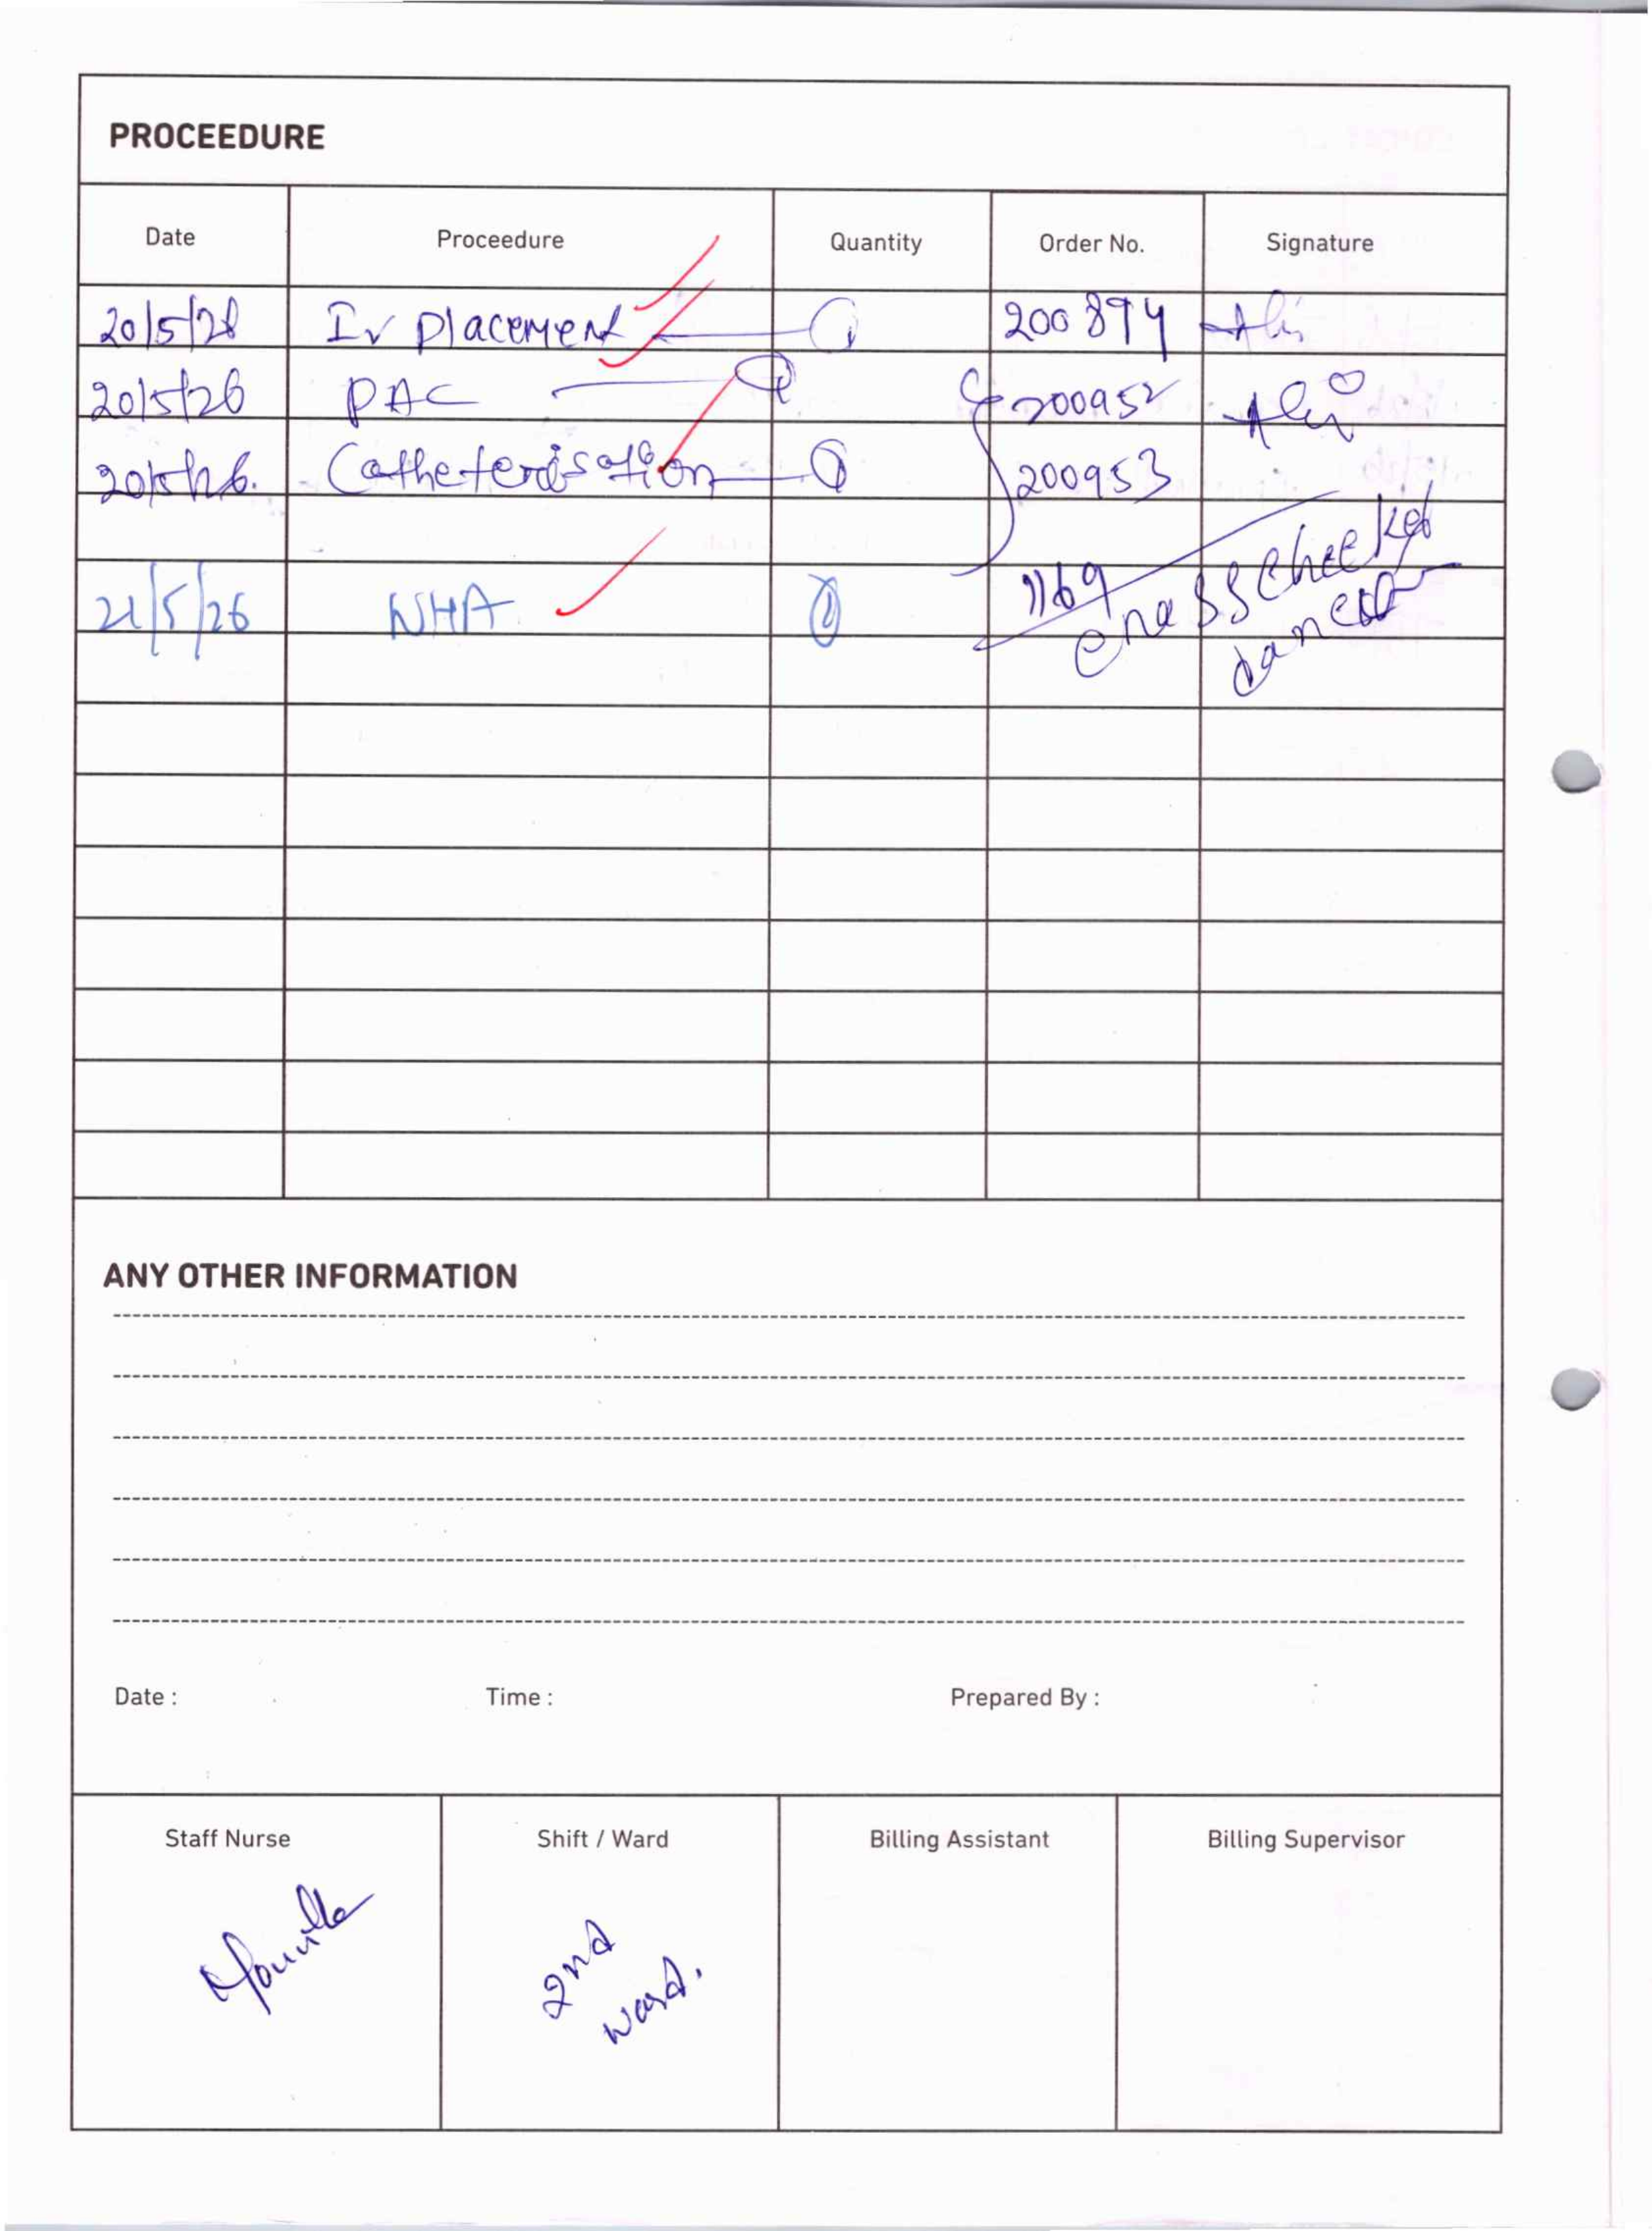 PROCEEDURE
Date Proceedure Quantity Order No. Signature
20/5/26 Iv placement 1 200894
20/5/26 PAC 1 200952
20/5/26. Catheterisation 1 200953
21/5/26 NHA 1 1169
checked
ANY OTHER INFORMATION
Date : Time : Prepared By :
Staff Nurse Shift / Ward Billing Assistant Billing Supervisor
2nd
ward.